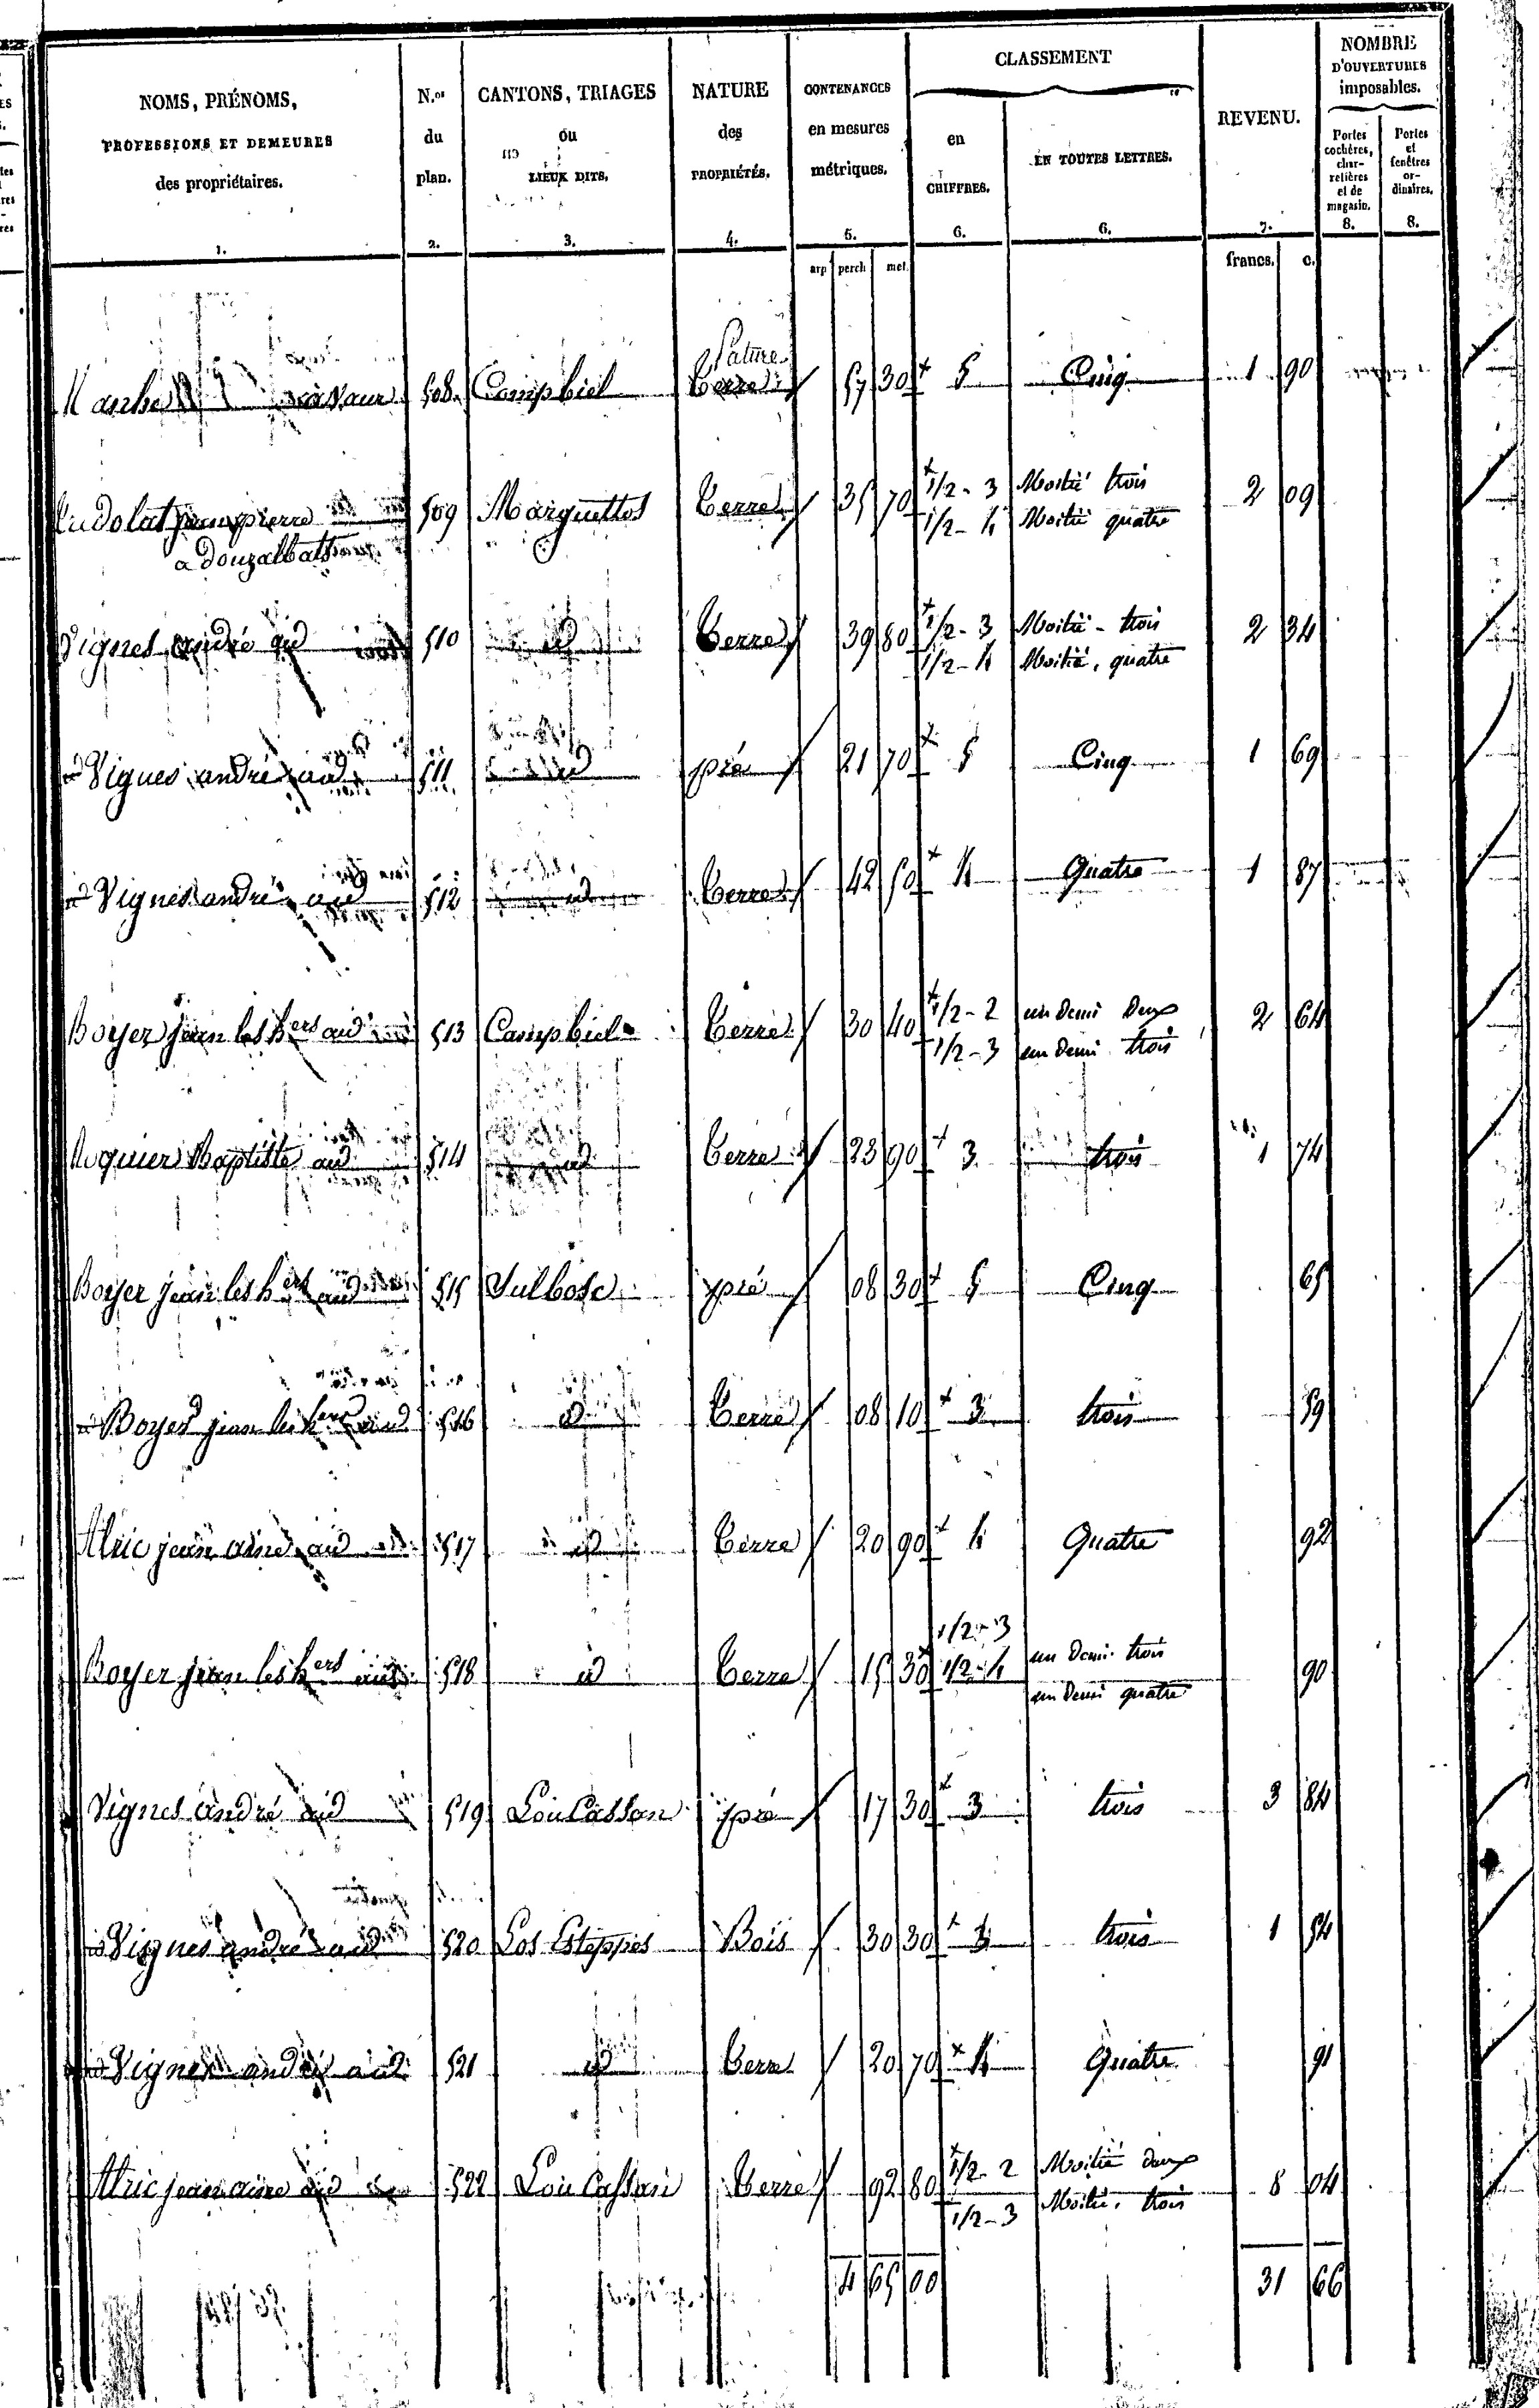 NOMS, PRÉNOMS, PROFESSIONS ET DEMEURES des propriétaires. 1.
N.os du plan. 2.
CANTONS, TRIAGES ou LIEUX DITS. 3.
NATURE des PROPRIÉTÉS. 4.
CONTENANCES en mesures métriques. 5.
CLASSEMENT
en CHIFFRES. 6.
EN TOUTES LETTRES. 6.
REVENU. 7.
NOMBRE D'OUVERTURES imposables.
Portes cochères, charretières et de magasin. 8.
Portes et fenêtres ordinaires. 8.
arp perch met. francs. c.
Pature
508 Campbiel Terre 57 30 5 Cinq 1 90
pierre 509 Marguettos Terre 35 70 1/2-3 Moitié trois 2 09
1/2-4 Moitié quatre
a
Vignes andré aud 510 id Terre 39 80 1/2-3 Moitié-trois 2 34
1/2-4 Moitié, quatre
Vignes andré aud 511 id pré 21 70 5 Cinq 1 69
Vignes andré aud 512 id Terre 42 50 4 Quatre 1 87
Boyer jean les hers aud 513 Campbiel Terre 30 40 1/2-2 un Demi Deux 2 64
1/2-3 un Demi trois
Baptiste aud 514 id Terre 23 90 3 trois 1 74
Boyer jean les hers aud 515 Sulbosc pré 08 30 5 Cinq 65
Boyer jean les hers aud 516 id Terre 08 10 3 trois 59
Alric jean ainé aud 517 id Terre 20 90 4 Quatre 92
1/2-3
Boyer jean les hers aud 518 id Terre 15 30 1/2-4 un Demi trois 90
un Demi quatre
Vignes andré aud 519 Lou Cassan pré 17 30 3 trois 3 84
Vignes andré aud 520 Los Esteppes Bois 30 30 3 trois 1 54
Vignes andré aud 521 id Terre 20 70 4 Quatre 91
Alric jean ainé aud 522 Lou Cassan Terre 92 80 1/2-2 Moitié deux 8 04
1/2-3 Moitié, trois
4 65 00 31 66